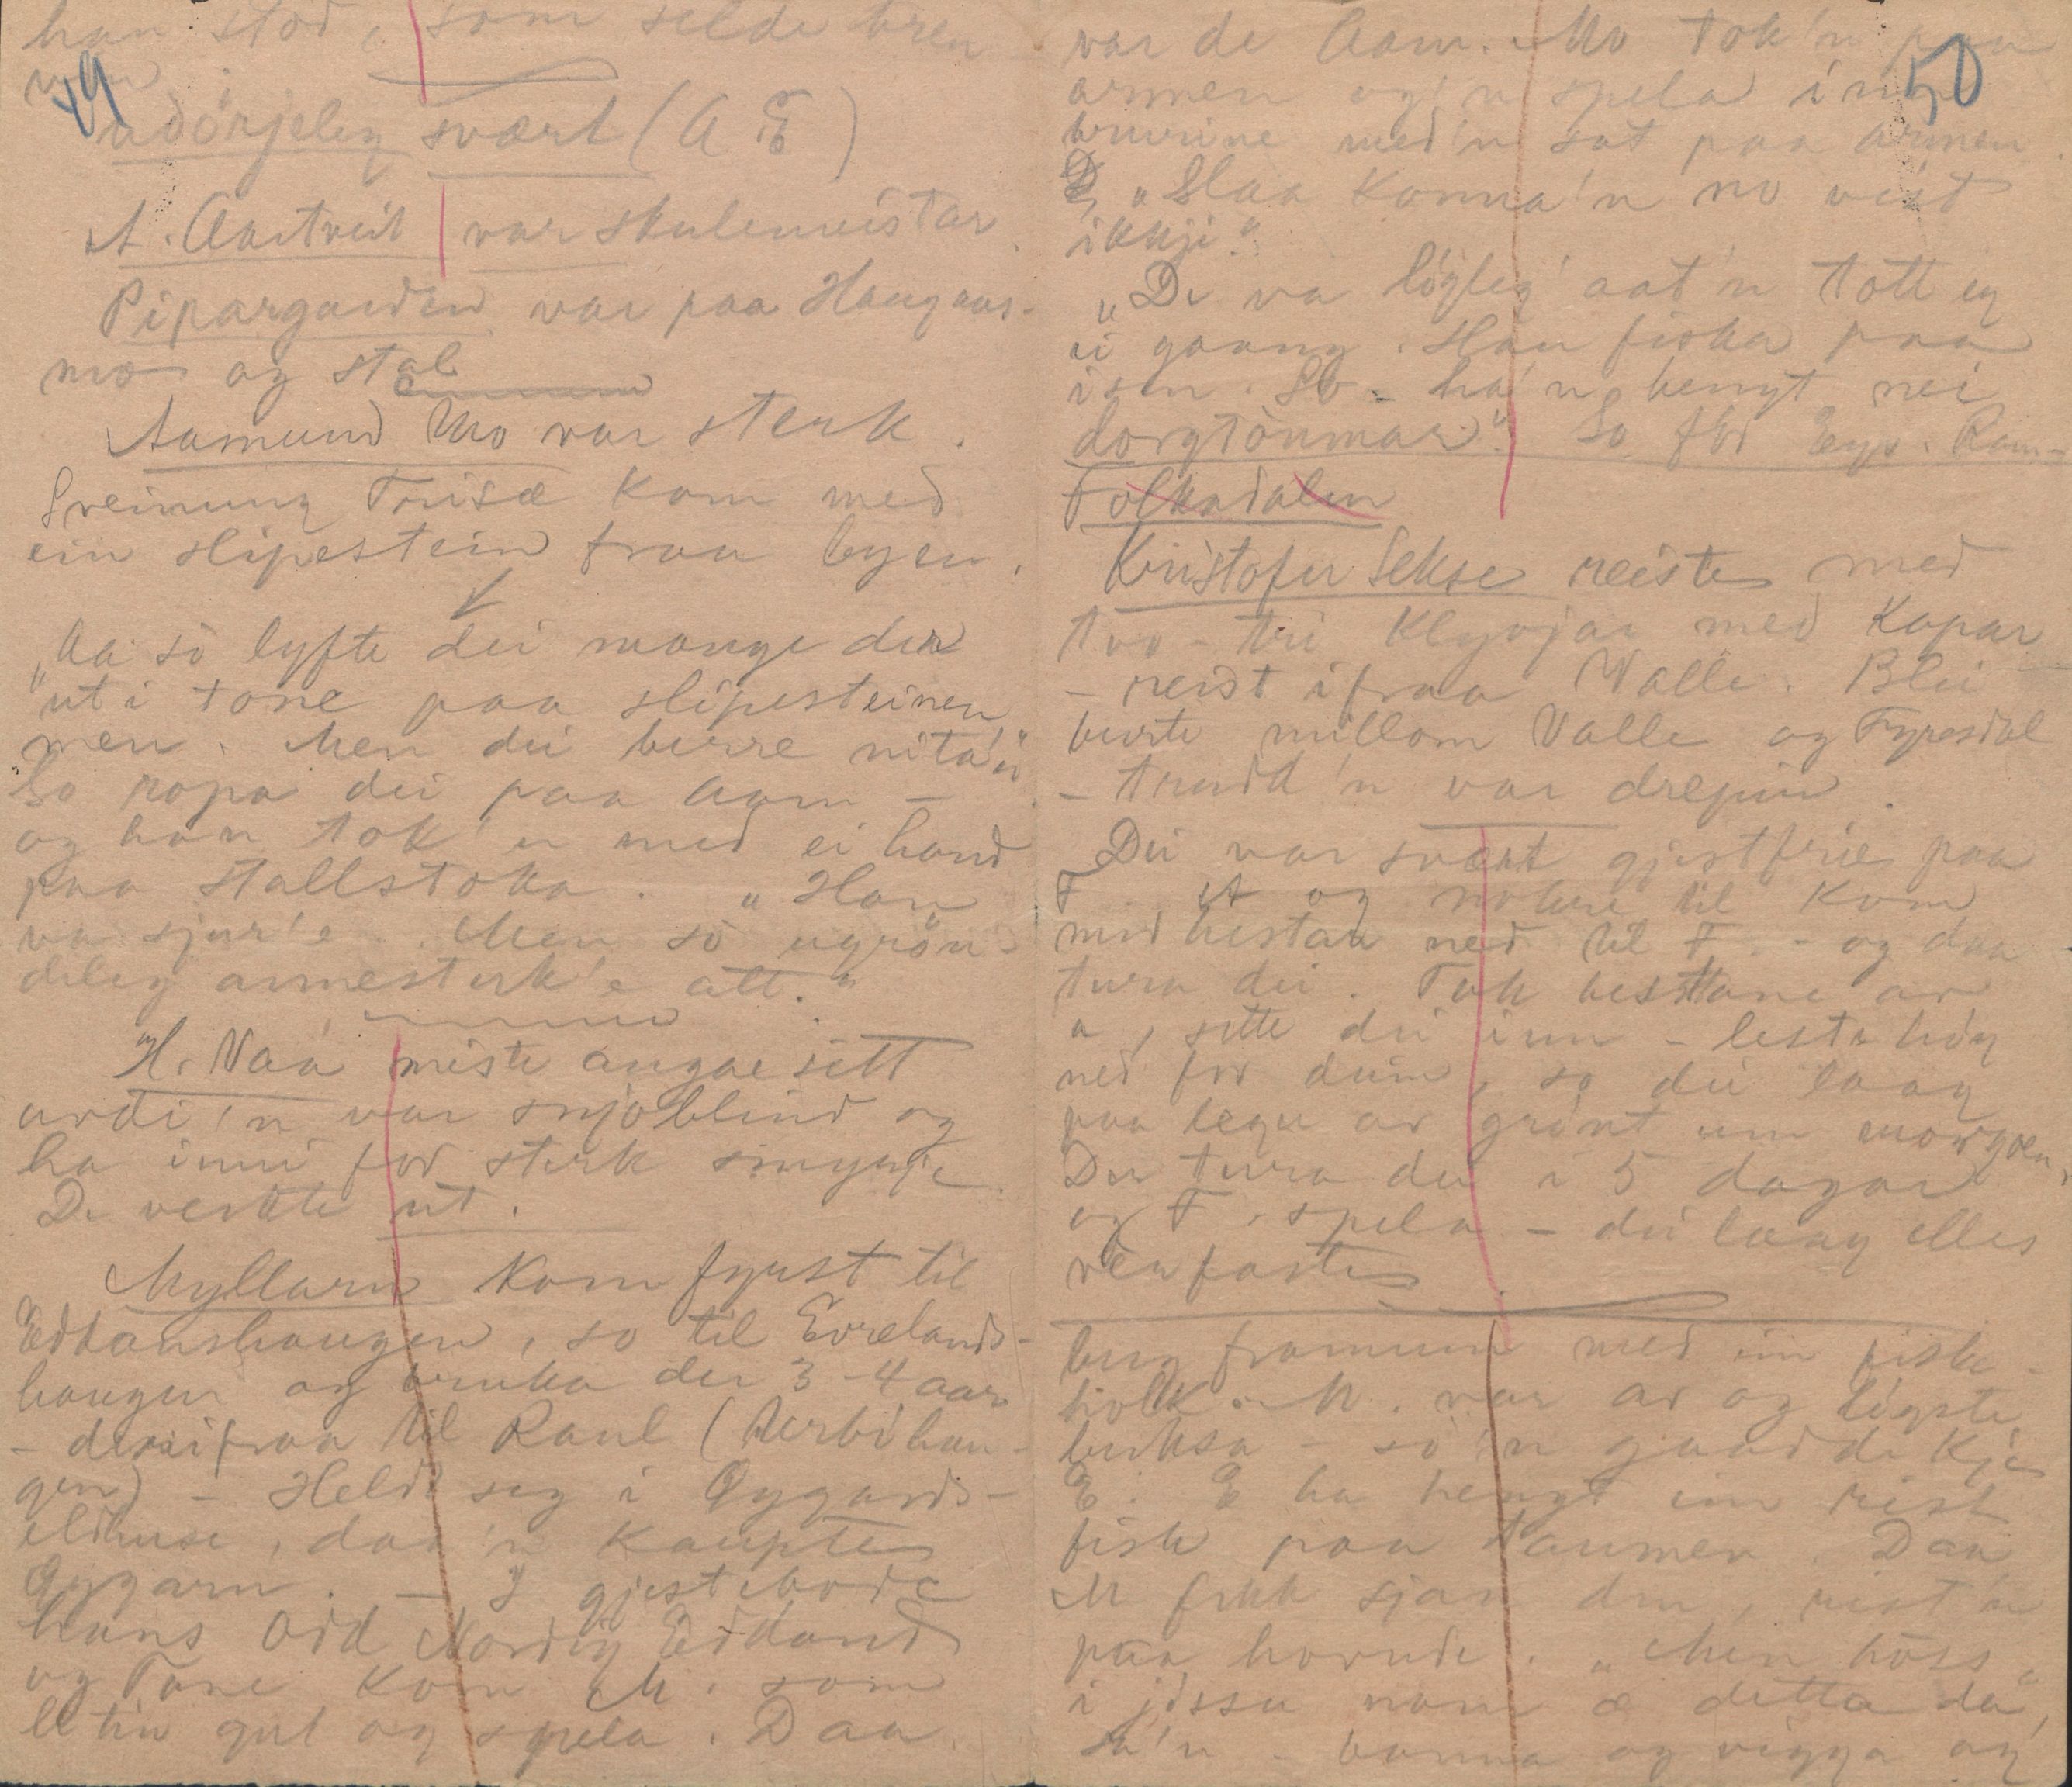 49
han stod, som selde bren
vin.
udörjeleg svært (A E)
A. Aartveit var skulemeistar.
Pipargarden var paa Haugaas-
mo og stal
Aamund Mo var sterk.
Sveinung Trisæ kom med
ein slipestein fraa byen.
"Aa so lyfte dei mange der
ut i tone paa slipesteinen
men. Men dei berre vita'n"
So ropa dei paa Aam –
og han tok 'n med ei hand
paa stallstoka. "Han
va sjur'e. Men so ugrön-
deleg armesterk'e att."
H. Vaa miste augae sitt
avdi 'n var snjoblind og
ha inni for sterk smyrje.
De verkte ut.
Myllarn kom fyrst til
Edlandshaugen, so til Evrelands-
haugen og bruka der 3-4 aar
– dersifraa til Raul (Berbihau-
gen) – Heldt seg i Öygards-
eldhuse, daa'n kaupte
Öygarn. – I gjestebode
hans Odd Nordig Edland
og Tone kom M. som
litin gut og spela. Daa
50
var de Aam. Mo tok'n paa
armen og'n spela inn
bruine med'n sat paa armen.
"Slaa konna'n no vist
ikkji."
"De va lögleg aat'n tott eg
ei gaang. Han fiska paa
isen. So ha'n hengt nei
dorgtönmar". So för Eyv. Ram-
Folkadalen
Kristofer Sekse reiste med
tvo-tri klyvjar med kopar
– reist ifraa Valle. Blei
burte millom Valle og Fyresdal
– trudd'n var drepin.
Dei var svært gjestfrie paa
F. A og nokre til kom
med hestar ned til F. – og daa
tura dei. Tok hestane av
a, sette dei inn – lesta höy
ned for deim, so dei laag
paa legu av grönt um morgoen.
Der tura dei i 5 dagar
og F. spela – dei laag elles
reinfaste
burg framum med ein fiske-
holk. M. var av og löyste
buksa – so'n gaadde kje
E. E ha hengt ein risk
fisk paa taumen. Daa
M fekk sjaa den, reist'n
paa hovude. "Men höss
i jössu namn æ detta da",
sa'n – banna og vigga og